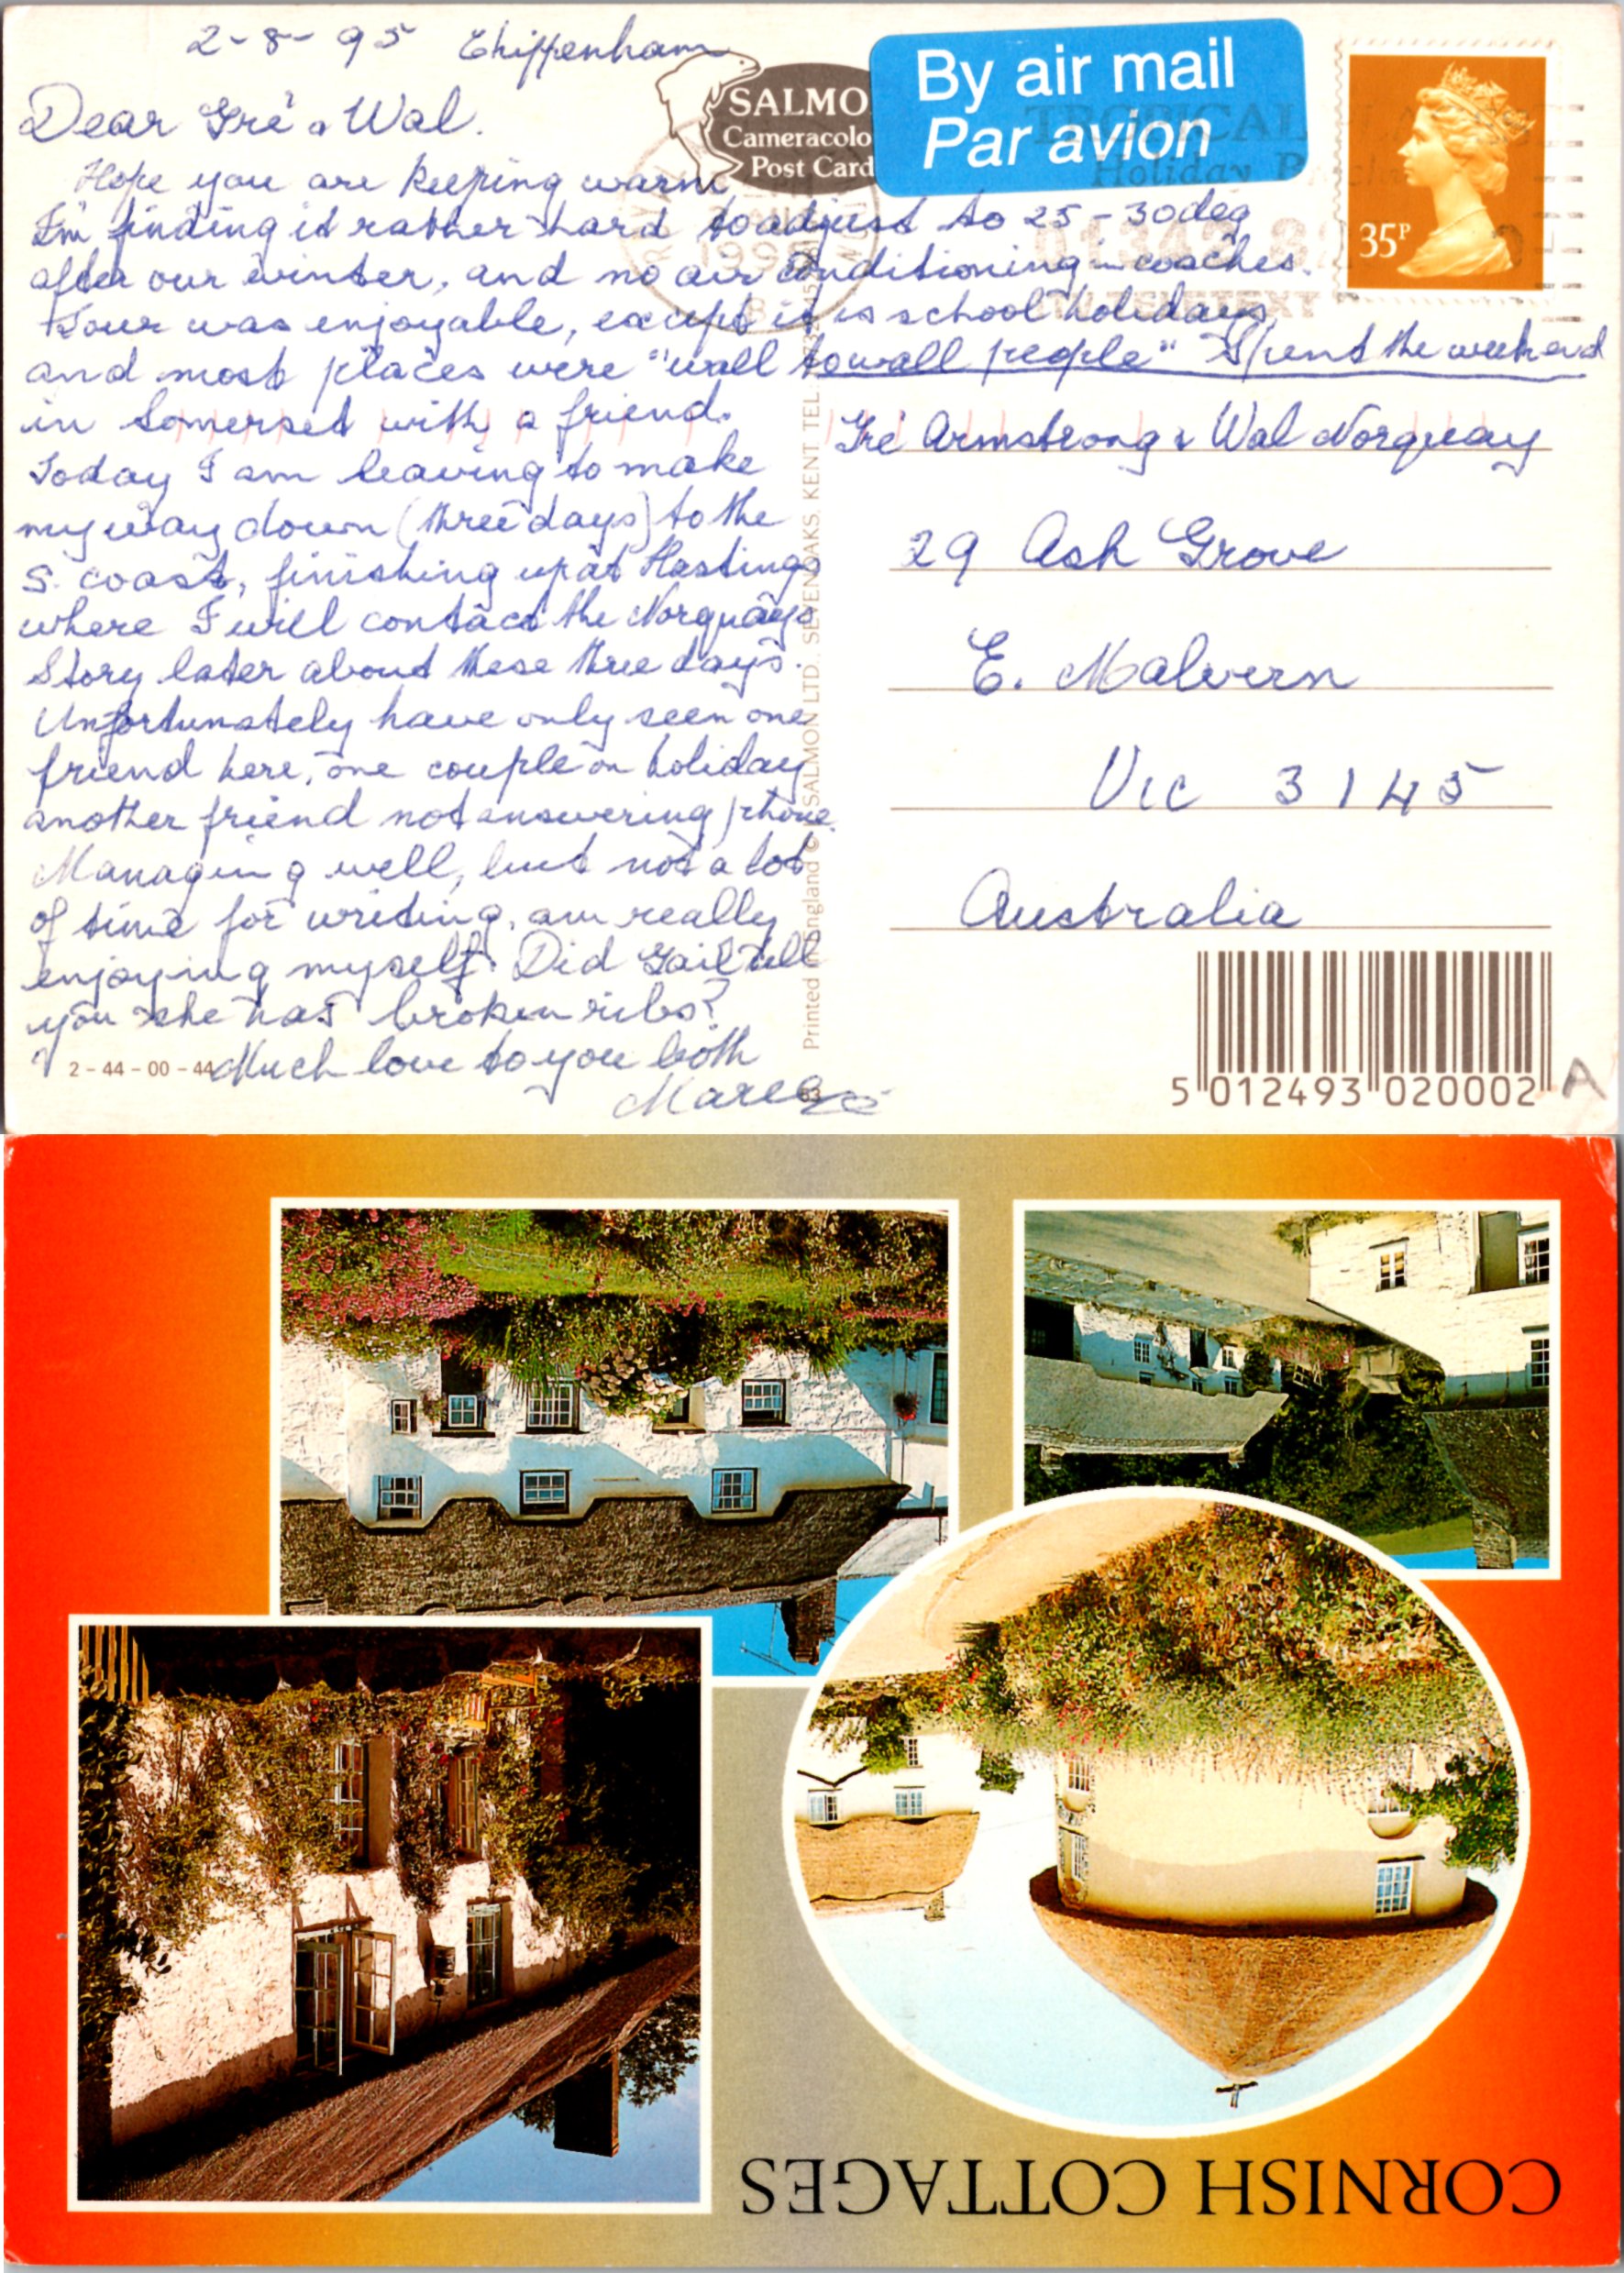 2-8-95 Chippenham
Dear Gré & Wal.
Hope you are keeping warm
I'm finding it rather hard to adjust to 25-30deg
after our winter, and no air conditioning in coaches.
Tour was enjoyable, except it is school holidays,
and most places were "wall to wall people" Spent the weekend
in Somerset with a friend.
Today I am leaving to make
my way down (three days) to the
S. coast, finishing up at Hastings
where I will contact the Norquays
Story later about these three days.
Unfortunately have only seen one
friend here, one couple on holiday
another friend not answering phone.
Managing well, but not a lot
of time for writing, am really
enjoying myself. Did Gail tell
you she has broken ribs?
Much love to you both
2-44-00-44
SALMO
Cameracolo
Post Card
By air mail
Par avion
35P
TROPICAL
Holiday
1995
Gré Armstrong & Wal Norquay
29 Ash Grove
E. Malvern
Vic 3145
Australia
Printed in England © SALMON LTD., SEVENOAKS, KENT. TEL
5 012493 020002
A
CORNISH COTTAGES